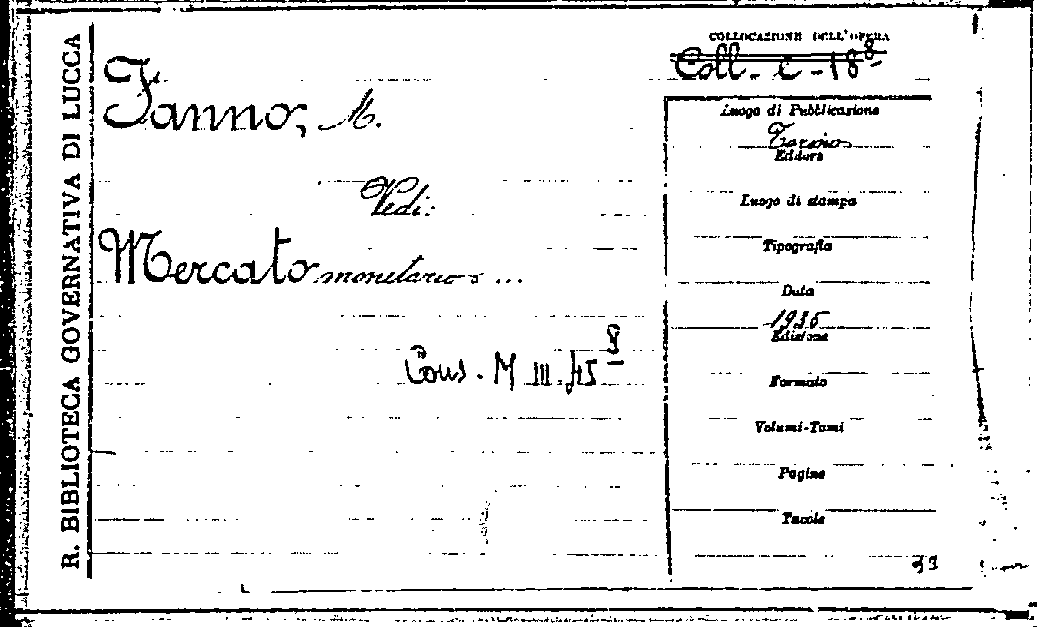 R. BIBLIOTECA GOVERNATIVA DI LUCCA
Fanno, M.
Vedi:
Mercato monetario ...
Cons. M III. 45 8
COLLOCAZIONE DELL'OPERA
Coll. C - 18 8 -
Luogo di Pubblicazione
Torino
Editore
Luogo di stampa
Tipografia
Data
1935
Edizione
Formato
Volumi-Tomi
Pagine
Tavole